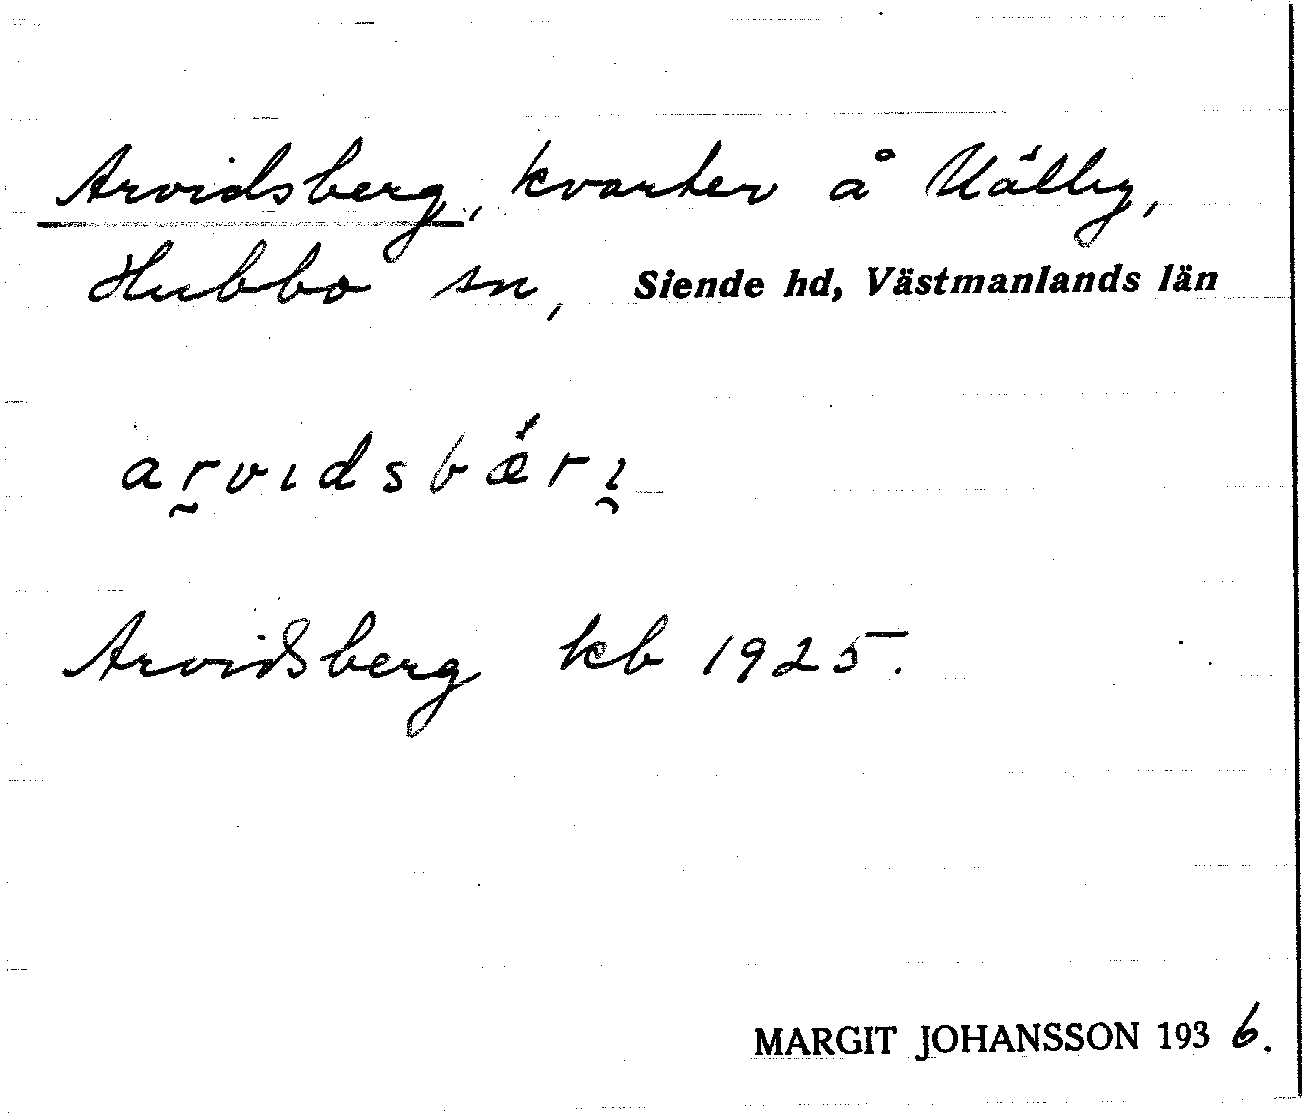 Arvidsberg, kvarter å Källby,
Hubbo sn, Siende hd, Västmanlands län
arvıdsbǽrı̯
Arvidsberg kb 1925.
MARGIT JOHANSSON 1936.